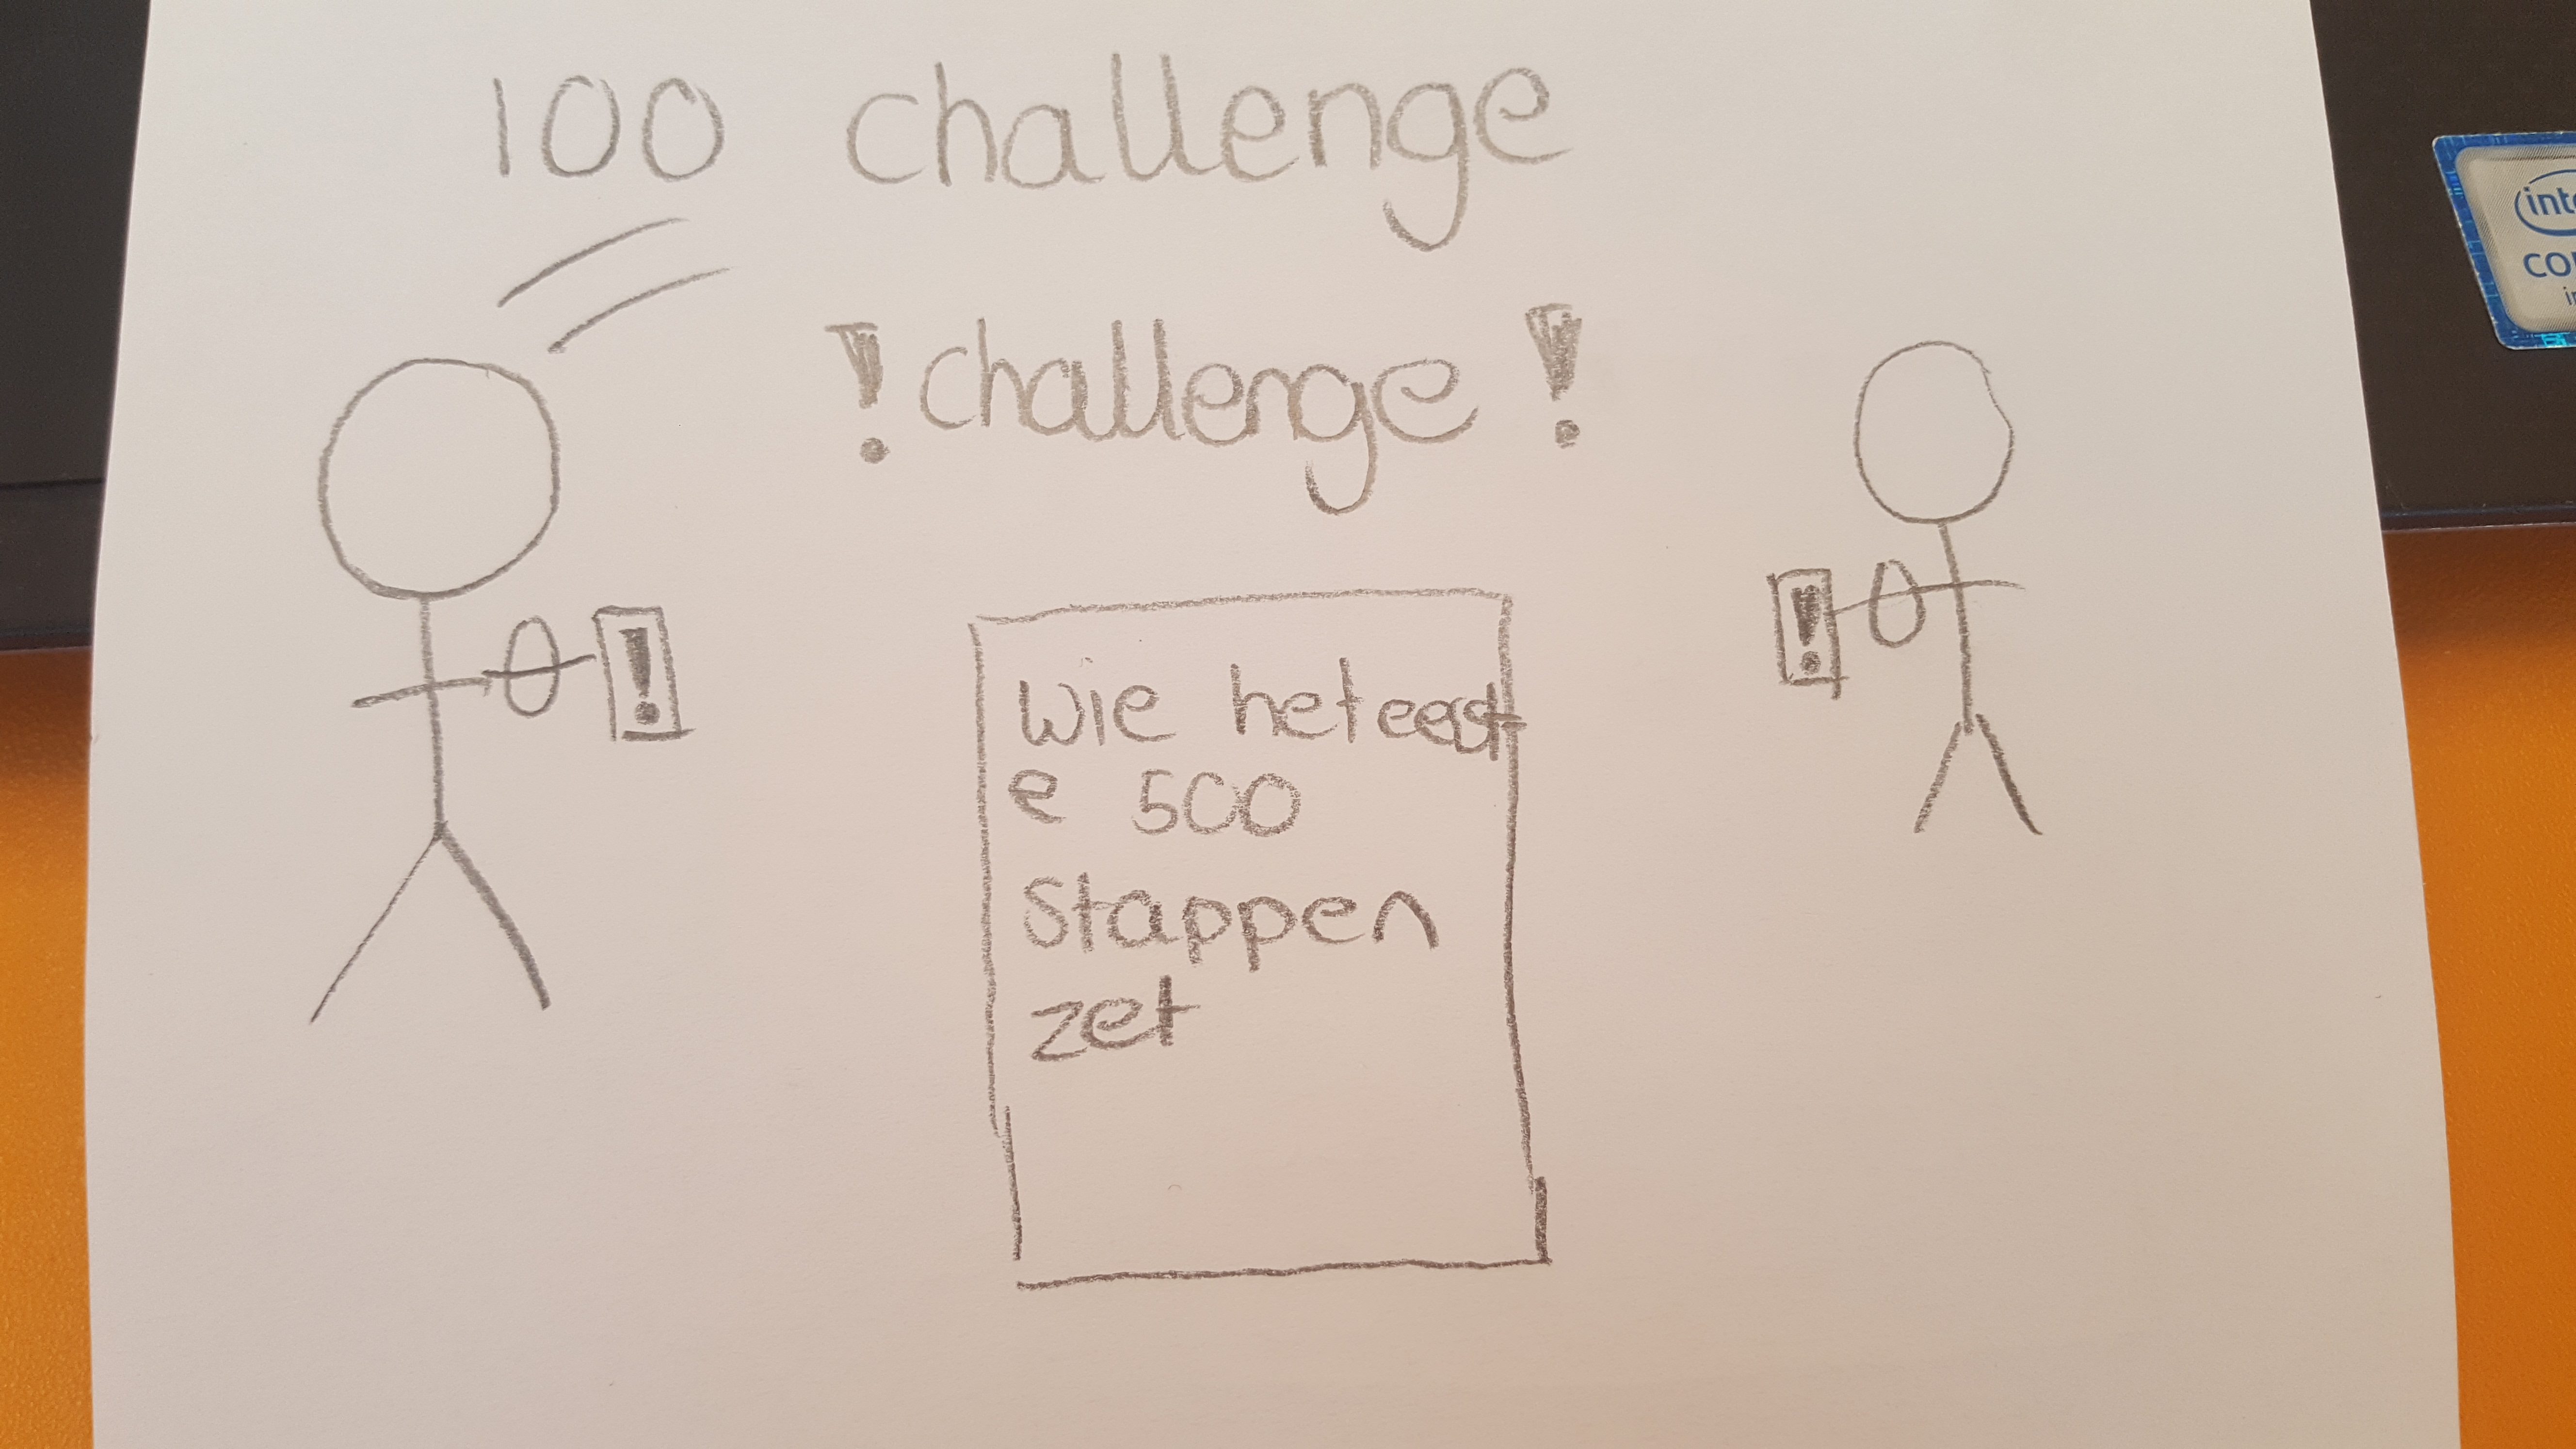 100 challenge
! challenge !
!
!
wie het eerst
e 500
stappen
zet
inte
CO
i